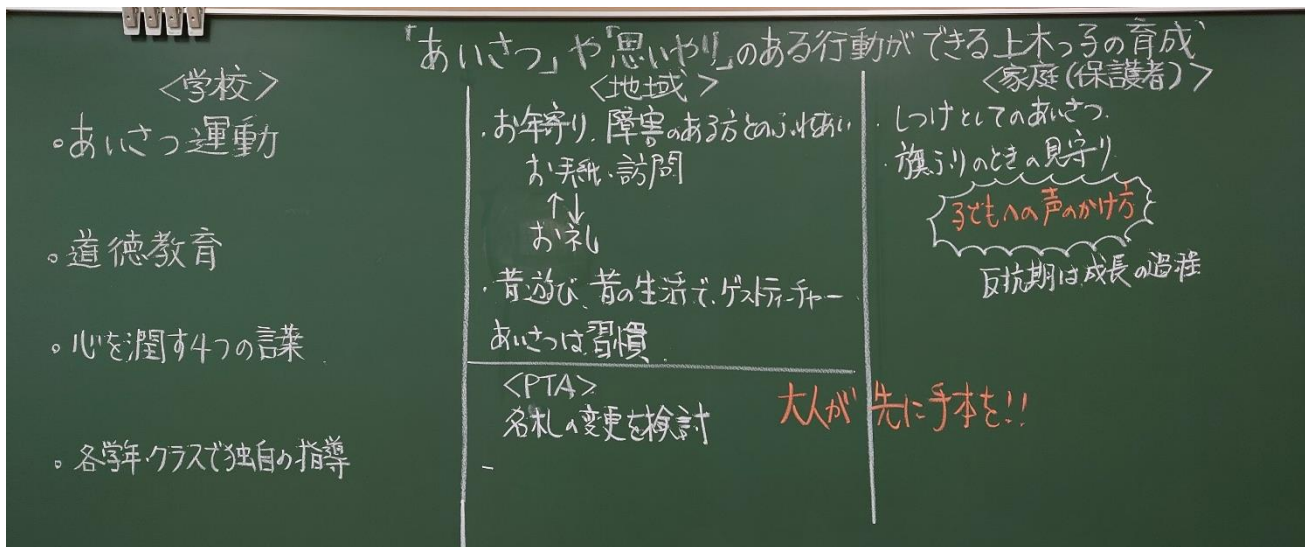 「あいさつ」や「思いやり」のある行動ができる上木っ子の育成
<学校>
・あいさつ運動
・道徳教育
・心を潤す4つの言葉
・各学年・クラスで独自の指導
<地域>
・お年寄り、障害のある方とのふれあい
お手紙・訪問
↑↓
お礼
・昔遊び、昔の生活で、ゲストティーチャー
あいさつは習慣
<PTA>
名札の変更を検討
<家庭(保護者)>
・しつけとしてのあいさつ
・旗ふりのときの見守り
子どもへの声のかけ方
反抗期は成長の過程
大人が先に手本を!!